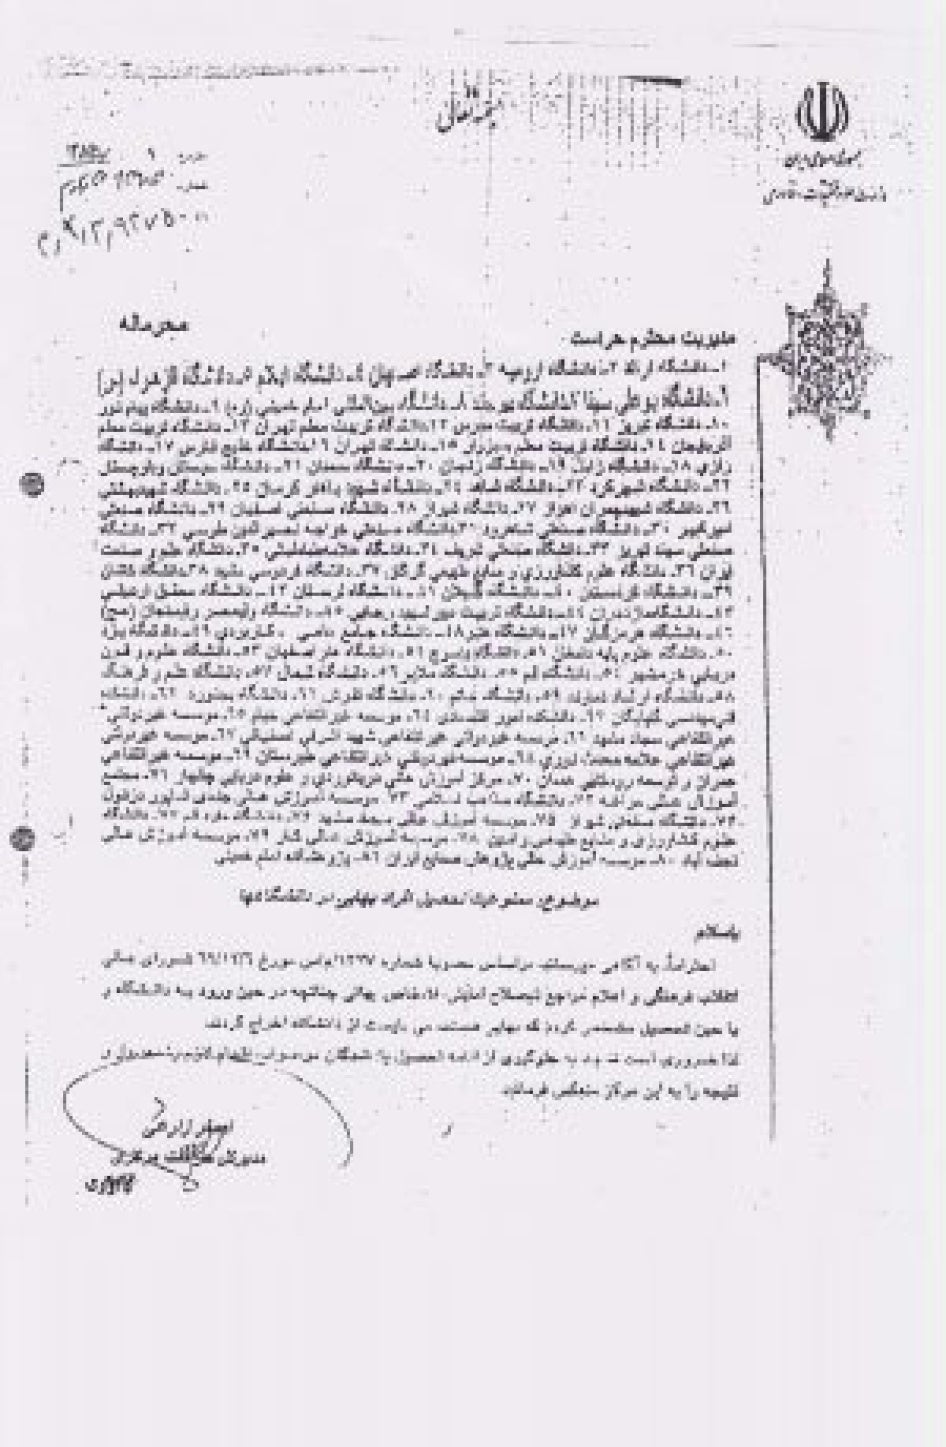 بسمه تعالی
جمهوری اسلامی ایران
وزارت علوم، تحقیقات و فناوری
محرمانه
مدیریت محترم حراست
۱ـ دانشگاه اراک ۲ـ دانشگاه ارومیه ۳ـ دانشگاه اصفهان ۴ـ دانشگاه ایلام ۵ـ دانشگاه الزهراء (س)
۶ـ دانشگاه بوعلی سینا ۷ـ دانشگاه بیرجند ۸ـ دانشگاه بین‌المللی امام خمینی (ره) ۹ـ دانشگاه پیام نور
۱۰ـ دانشگاه تبریز ۱۱ـ دانشگاه تربیت مدرس ۱۲ـ دانشگاه تربیت معلم تهران ۱۳ـ دانشگاه تربیت معلم
آذربایجان ۱۴ـ دانشگاه تربیت معلم سبزوار ۱۵ـ دانشگاه تهران ۱۶ـ دانشگاه خلیج فارس ۱۷ـ دانشگاه
رازی ۱۸ـ دانشگاه زابل ۱۹ـ دانشگاه زنجان ۲۰ـ دانشگاه سمنان ۲۱ـ دانشگاه سیستان و بلوچستان
۲۲ـ دانشگاه شهرکرد ۲۳ـ دانشگاه شاهد ۲۴ـ دانشگاه شهید باهنر کرمان ۲۵ـ دانشگاه شهید بهشتی
۲۶ـ دانشگاه شهید چمران اهواز ۲۷ـ دانشگاه شیراز ۲۸ـ دانشگاه صنعتی اصفهان ۲۹ـ دانشگاه صنعتی
امیرکبیر ۳۰ـ دانشگاه صنعتی شاهرود ۳۱ـ دانشگاه صنعتی خواجه نصیر الدین طوسی ۳۲ـ دانشگاه
صنعتی سهند تبریز ۳۳ـ دانشگاه صنعتی شریف ۳۴ـ دانشگاه علامه طباطبایی ۳۵ـ دانشگاه علم و صنعت
ایران ۳۶ـ دانشگاه علوم کشاورزی و منابع طبیعی گرگان ۳۷ـ دانشگاه فردوسی مشهد ۳۸ـ دانشگاه کاشان
۳۹ـ دانشگاه کردستان ۴۰ـ دانشگاه گیلان ۴۱ـ دانشگاه لرستان ۴۲ـ دانشگاه محقق اردبیلی
۴۳ـ دانشگاه مازندران ۴۴ـ دانشگاه تربیت دبیر شهید رجایی ۴۵ـ دانشگاه ولیعصر رفسنجان (عج)
۴۶ـ دانشگاه هرمزگان ۴۷ـ دانشگاه هنر ۴۸ـ دانشگاه جامع علمی ـ کاربردی ۴۹ـ دانشگاه یزد
۵۰ـ دانشگاه علوم پایه دامغان ۵۱ـ دانشگاه یاسوج ۵۲ـ دانشگاه هنر اصفهان ۵۳ـ دانشگاه علوم و فنون
دریایی خرمشهر ۵۴ـ دانشگاه قم ۵۵ـ دانشگاه ملایر ۵۶ـ دانشگاه شمال ۵۷ـ دانشگاه علم و فرهنگ
۵۸ـ دانشگاه ارشاد دماوند ۵۹ـ دانشگاه خاتم ۶۰ـ دانشگاه تفرش ۶۱ـ دانشگاه بجنورد ۶۲ـ دانشکده
فنی مهندسی گلپایگان ۶۳ـ دانشکده امور اقتصادی ۶۴ـ موسسه غیرانتفاعی خیام ۶۵ـ موسسه غیردولتی
غیرانتفاعی سجاد مشهد ۶۶ـ موسسه غیردولتی غیرانتفاعی شهید اشرفی اصفهانی ۶۷ـ موسسه غیردولتی
غیرانتفاعی علامه محدث نوری ۶۸ـ موسسه غیردولتی غیرانتفاعی طبرستان ۶۹ـ موسسه غیرانتفاعی
عمران و توسعه روستایی همدان ۷۰ـ مرکز آموزش عالی دریانوردی و علوم دریایی چابهار ۷۱ـ مجتمع
آموزش عالی مراغه ۷۲ـ دانشگاه مذاهب اسلامی ۷۳ـ موسسه آموزش عالی جندی شاپور دزفول
۷۴ـ دانشگاه صنعتی شیراز ۷۵ـ موسسه آموزش عالی سجاد مشهد ۷۶ـ دانشگاه مفید قم ۷۷ـ دانشگاه
علوم کشاورزی و منابع طبیعی رامین ۷۸ـ موسسه آموزش عالی کار ۷۹ـ موسسه آموزش عالی
نجف آباد ۸۰ـ موسسه آموزش عالی پژوهش صنایع ایران ۸۱ـ پژوهشکده امام خمینی
موضوع: ممنوعیت تحصیل افراد بهایی در دانشگاهها
باسلام
احتراماً، به آگاهی میرساند براساس مصوبه شماره ۱۳۲۷/م/س مورخ ۶۹/۱۲/۶ شورای عالی
انقلاب فرهنگی و اعلام مراجع ذیصلاح امنیتی، اشخاص بهائی چنانچه در حین ورود به دانشگاه و
یا حین تحصیل مشخص گردد که بهایی هستند می بایست از دانشگاه اخراج گردند.
لذا ضروری است نسبت به جلوگیری از ادامه تحصیل یاد شدگان موصوف، اقدام لازم را معمول و
نتیجه را به این مرکز منعکس فرمائید.
اصغر زارعی
مدیرکل حراست مرکزی